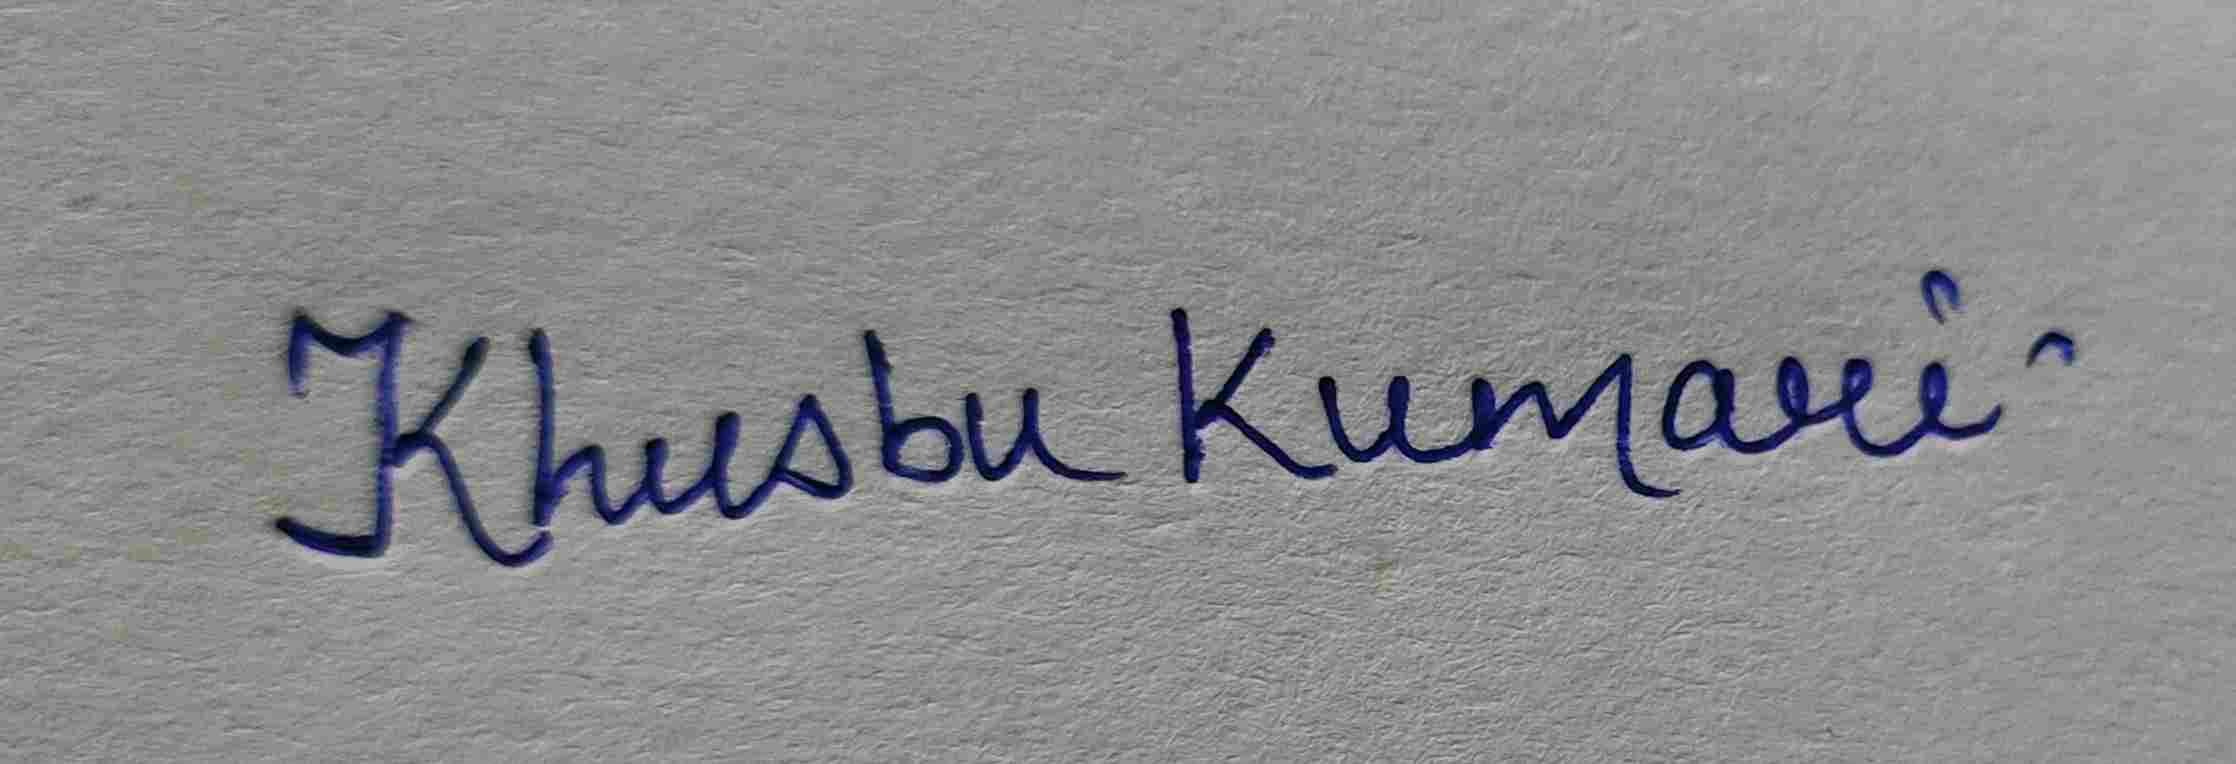 Khusbu Kumari